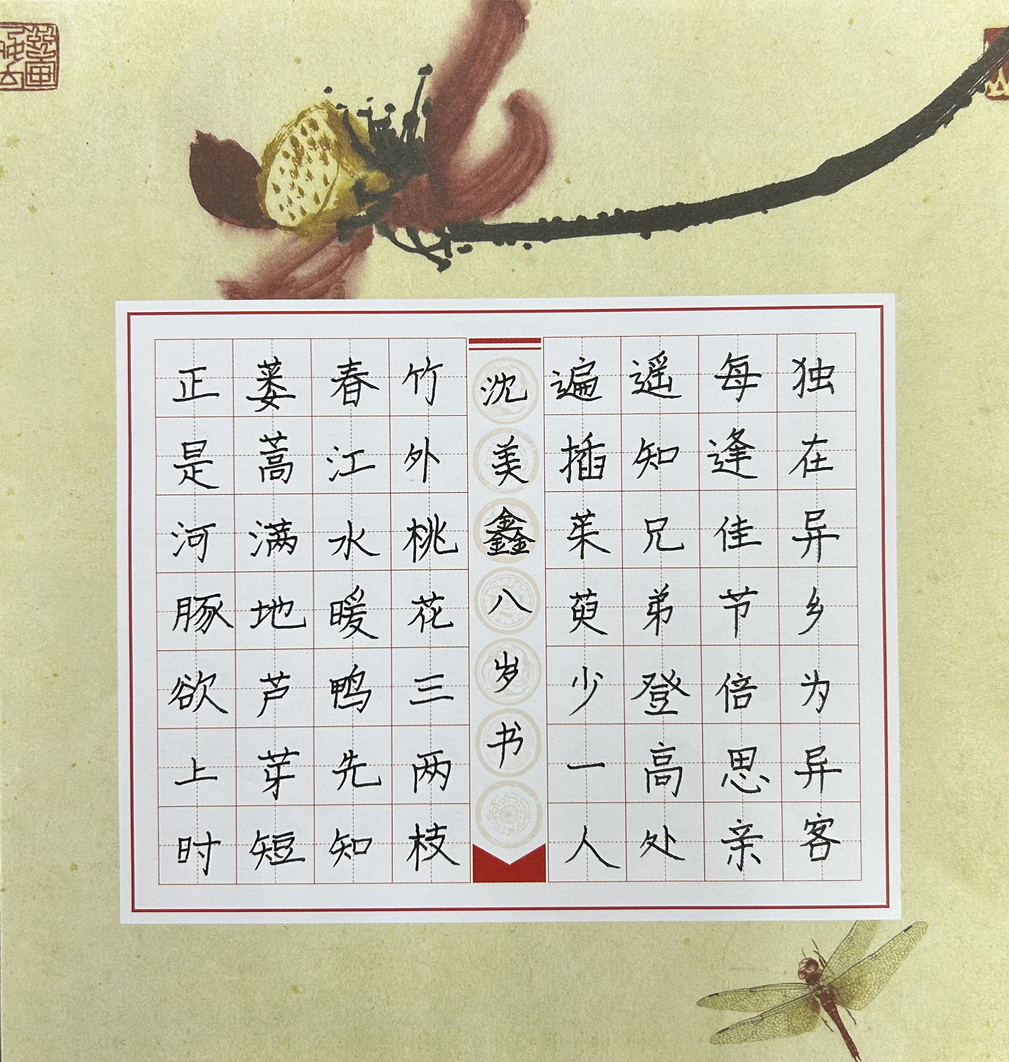 独在异乡为异客
每逢佳节倍思亲
遥知兄弟登高处
遍插茱萸少一人
沈美鑫八岁书
竹外桃花三两枝
春江水暖鸭先知
蒌蒿满地芦芽短
正是河豚欲上时